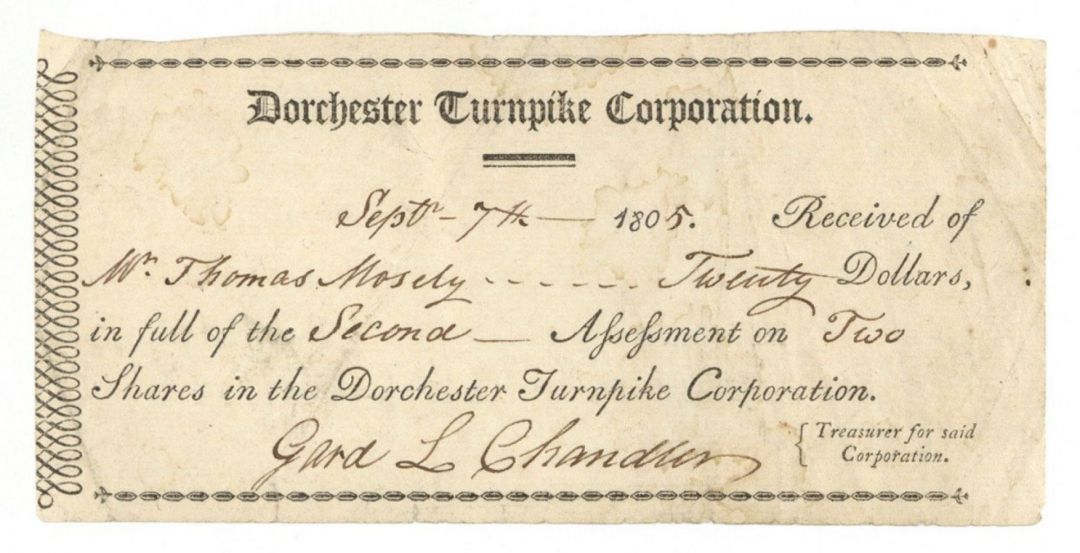 Dorchester Turnpike Corporation.
Septr - 7th — 1805. Received of
Mr. Thomas Mosely - - - - - - Twenty Dollars,
in full of the Second — Aſseſsment on Two
Shares in the Dorchester Turnpike Corporation.
Gard L Chandler { Treasurer for said
Corporation.